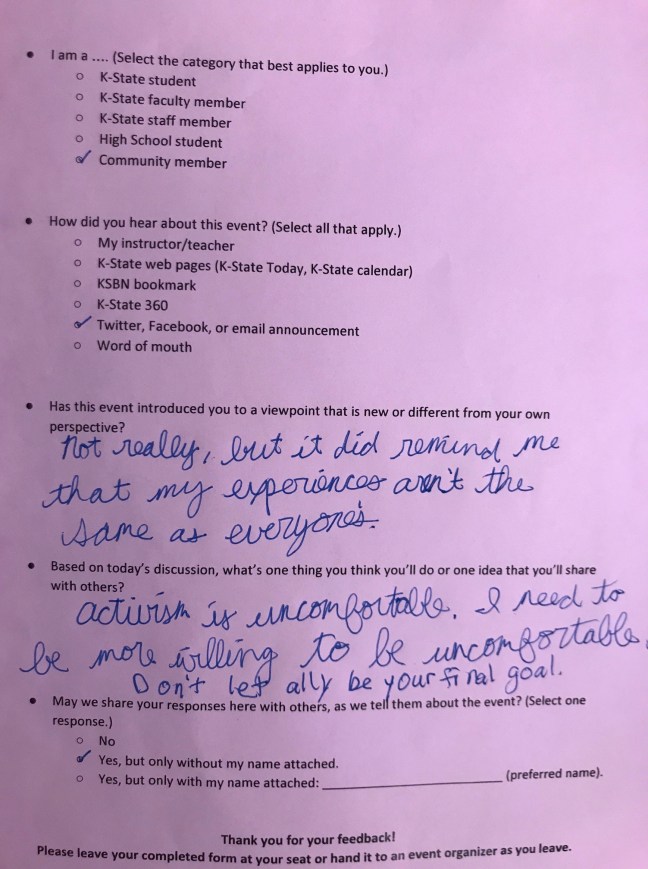 • I am a .... (Select the category that best applies to you.)
o K-State student
o K-State faculty member
o K-State staff member
o High School student
✓ Community member
• How did you hear about this event? (Select all that apply.)
o My instructor/teacher
o K-State web pages (K-State Today, K-State calendar)
o KSBN bookmark
o K-State 360
✓ Twitter, Facebook, or email announcement
o Word of mouth
• Has this event introduced you to a viewpoint that is new or different from your own
perspective?
not really, but it did remind me
that my experiences aren't the
same as everyone's.
• Based on today's discussion, what's one thing you think you'll do or one idea that you'll share
with others?
activism is uncomfortable. I need to
be more willing to be uncomfortable.
Don't let ally be your final goal.
• May we share your responses here with others, as we tell them about the event? (Select one
response.)
o No
✓ Yes, but only without my name attached.
o Yes, but only with my name attached: ____________________ (preferred name).
Thank you for your feedback!
Please leave your completed form at your seat or hand it to an event organizer as you leave.